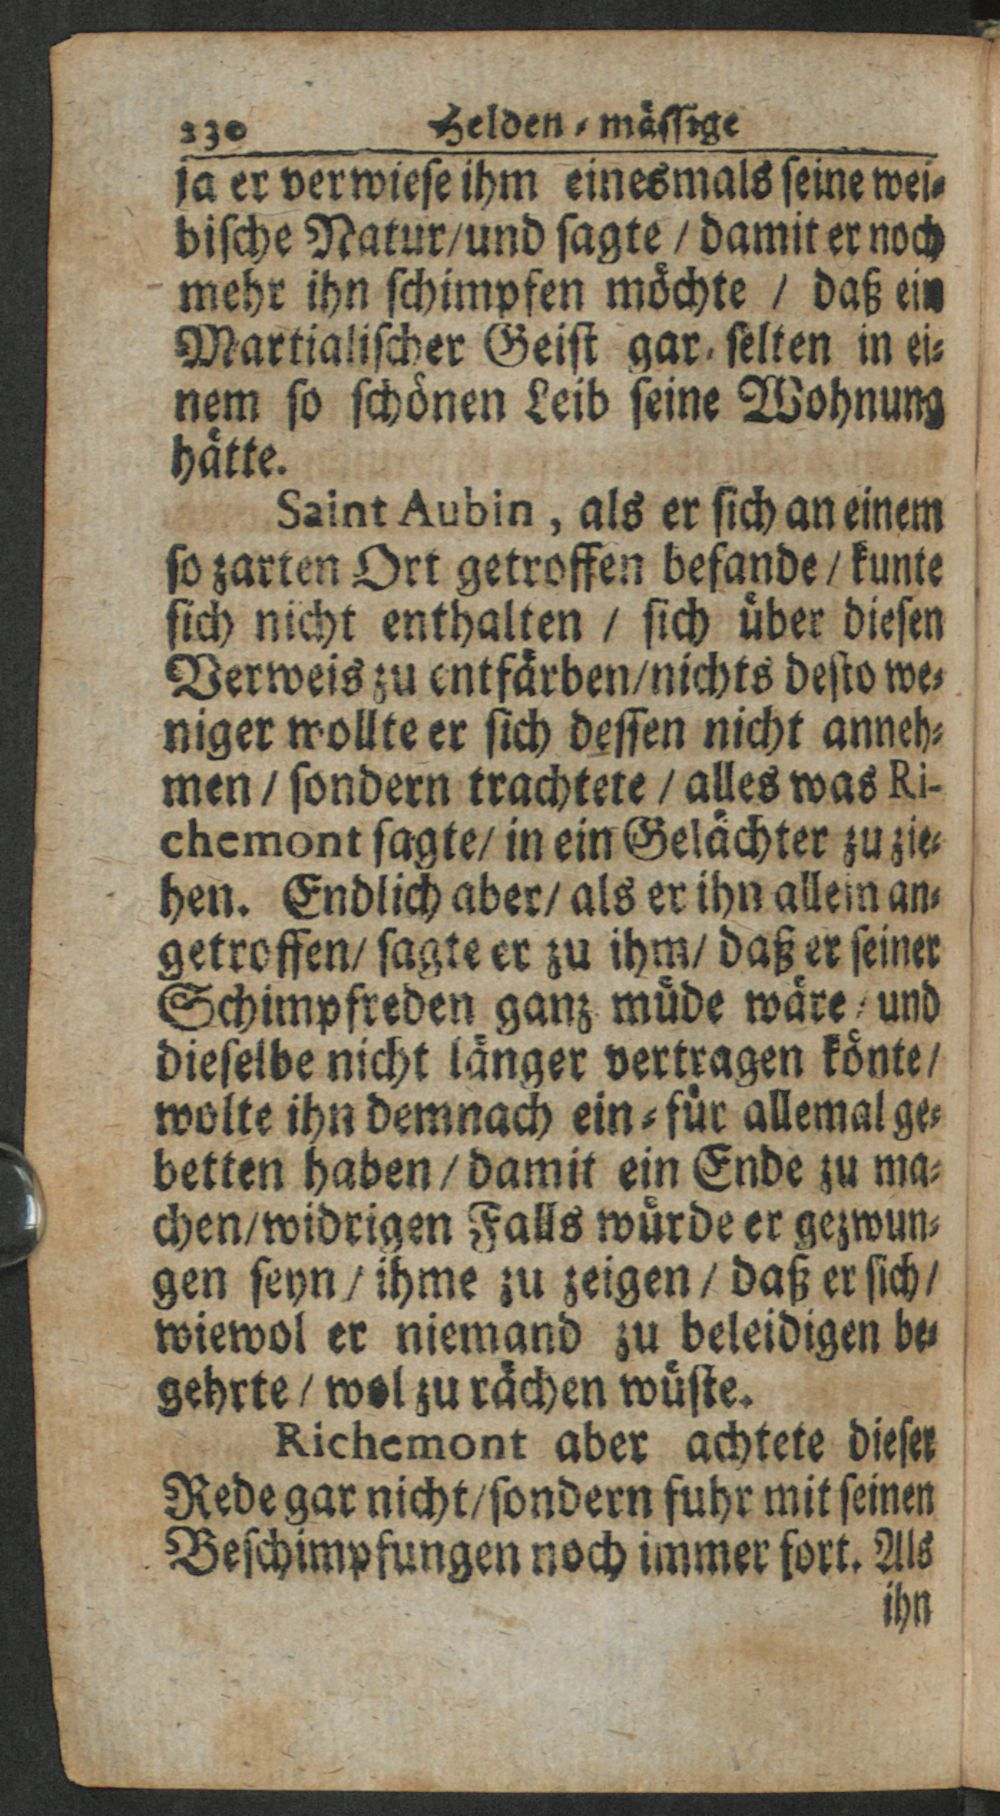 230 Helden-mässige
ja er verwiese ihm einesmals seine wei-
bische Natur/und sagte / damit er noch
mehr ihn schimpfen möchte / daß ein
Martialischer Geist gar selten in ei-
nem so schönen Leib seine Wohnung
hätte.
Saint Aubin, als er sich an einem
so zarten Ort getroffen befande / kunte
sich nicht enthalten / sich über diesen
Verweis zu entfärben/nichts desto we-
niger wollte er sich dessen nicht anneh-
men / sondern trachtete / alles was Ri-
chemont sagte/ in ein Gelächter zu zie-
hen. Endlich aber/ als er ihn allein an-
getroffen/ sagte er zu ihm/ daß er seiner
Schimpfreden ganz müde wäre / und
dieselbe nicht länger vertragen könte/
wolte ihn demnach ein-für allemal ge-
betten haben / damit ein Ende zu ma-
chen/widrigen Falls würde er gezwun-
gen seyn / ihme zu zeigen / daß er sich/
wiewol er niemand zu beleidigen be-
gehrte / wol zu rächen wüste.
Richemont aber achtete dieser
Rede gar nicht/sondern fuhr mit seinen
Beschimpfungen noch immer fort. Als
ihn